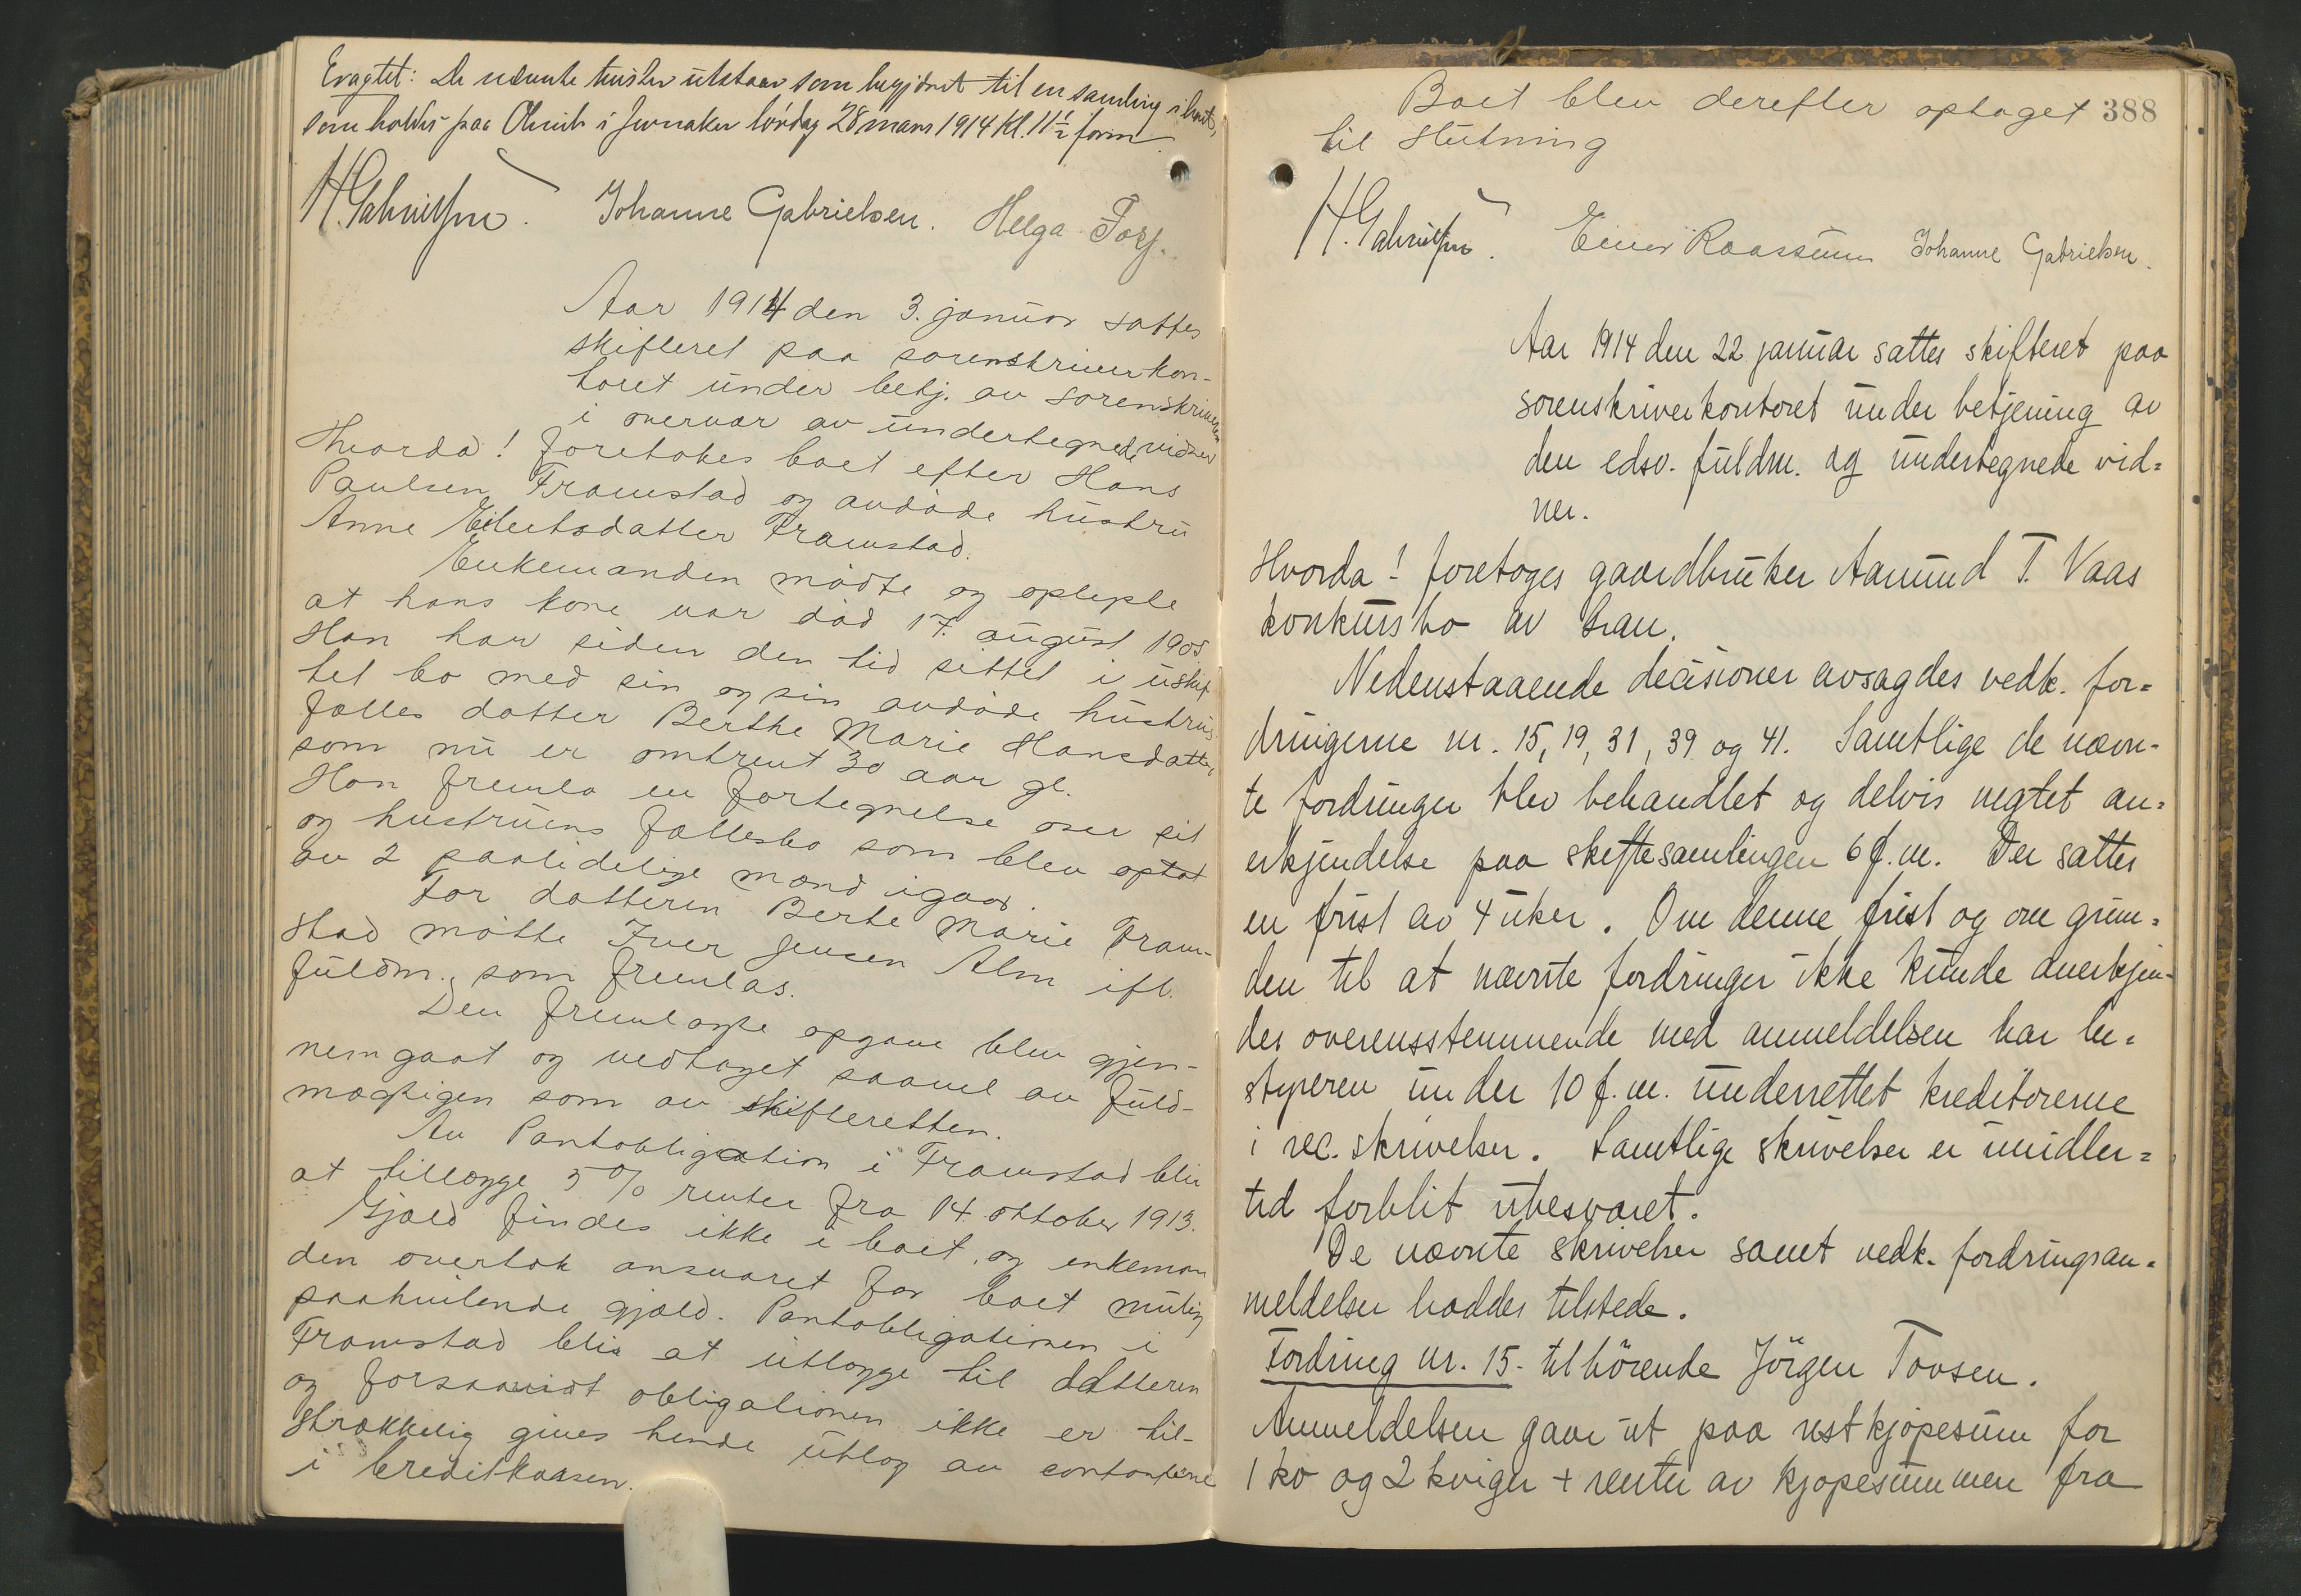 Eragtet: De nævnte tvister utstaar som begjæret til en samling i boet,
som holdes paa Olimb i Jevnaker lørdag 28 mars 1914 Kl. 11½ form.
H. Gabrielsen. Johanne Gabrielsen. Helga Torj.
Aar 1914 den 3. januar sattes
skifteret paa sorenskriverkon-
toret under betj. av sorenskriveren
i overvær av undertegnede vidner
Hvorda! foretokes boet efter Hans
Paulsen Framstad og avdøde hustru
Anne Eilertsdatter Framstad.
Enkemanden mødte og oplyste
at hans kone var død 17. august 1905
Han har siden den tid sittet i uskif-
tet bo med sin og sin avdøde hustrus
fælles datter Berthe Marie Hansdatter,
som nu er omtrent 30 aar gl.
Han fremla en fortegnelse over sit
og hustruens fællesbo som blev optat
av 2 paalidelige mænd igaar.
For datteren Berte Marie Fram-
stad møtte Iver Jensen Alm ifl.
fuldm. som fremlas.
Den fremlagte opgave blev gjen-
nemgaat og vedtaget saavel av fuld-
mægtigen som av skifteretten.
Av Pantobligation i Framstad blir
at tillægge 5 % renter fra 14. oktober 1913.
Gjæld findes ikke i boet, og enkeman
den overtok ansvaret for boet mulig
paahvilende gjæld. Pantobligationen i
Framstad blir at utlægge til datteren
og forsaavidt obligationen ikke er til-
strækkelig gives hende utlæg av contantene
i Creditkassen.
388
Boet blev derefter optaget
til slutning
H. Gabrielsen. Einar Raassum Johanne Gabrielsen.
Aar 1914 den 22 januar sattes skifteret paa
sorenskriverkontoret under betjening av
den edsv. fuldm. og undertegnede vid=
ner.
Hvorda! foretoges gaardbruker Aamund T. Vaas
konkursbo av Gran.
Nedenstaaende decisioner avsagdes vedk. for=
dringerne nr. 15, 19, 31, 39 og 41. Samtlige de nævn-
te fordringer blev behandlet og delvis negtet an=
erkjendelse paa skiftesamlingen 6 f.m. Der sattes
en frist av 4 uker. Om denne frist og om grun=
den til at nævnte fordringer ikke kunde anerkjen-
des overensstemmende med anmeldelsen har be=
styreren under 10 f.m. underrettet kreditorerne
i rec. skrivelser. Samtlige skrivelser er imidler=
tid forblit ubesvaret.
De nævnte skrivelser samt vedk. fordringsan=
meldelser haddes tilstede.
Fordring nr. 15. tilhörende Jörgen Tovsen.
Anmeldelsen gaar ut paa restkjøpesum for
1 ko og 2 kviger + renter av kjøpesummen fra